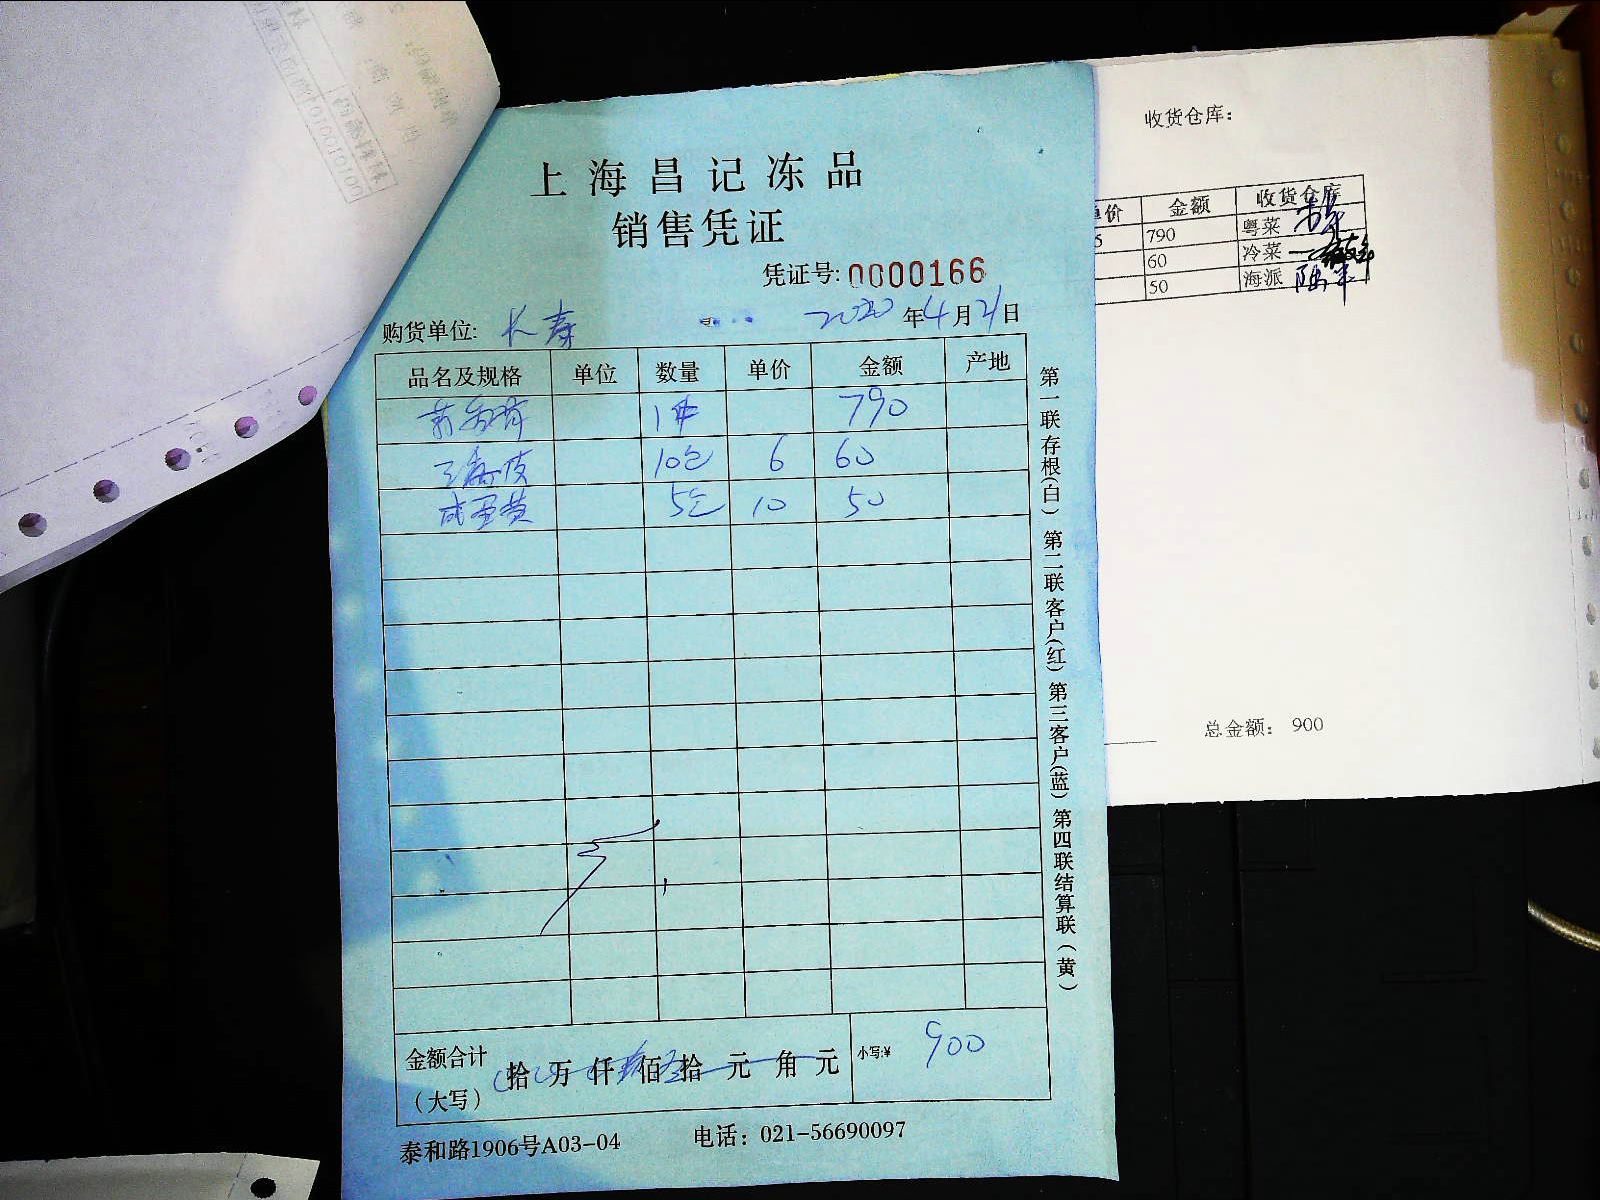 上海昌记冻品
销售凭证
凭证号:0000166
购货单位: 长寿 2020年4月21日
品名及规格 单位 数量 单价 金额 产地
1件 790
10包 6 60
咸蛋黄 5包 10 50
金额合计（大写） 拾 万 仟 佰 拾 元 角 元 小写:¥ 900
泰和路1906号A03-04 电话：021-56690097
第一联存根(白) 第二联客户(红) 第三客户(蓝) 第四联结算联(黄)
收货仓库:
单价 金额 收货仓库
5 790 粤菜
60 冷菜
50 海派
总金额: 900